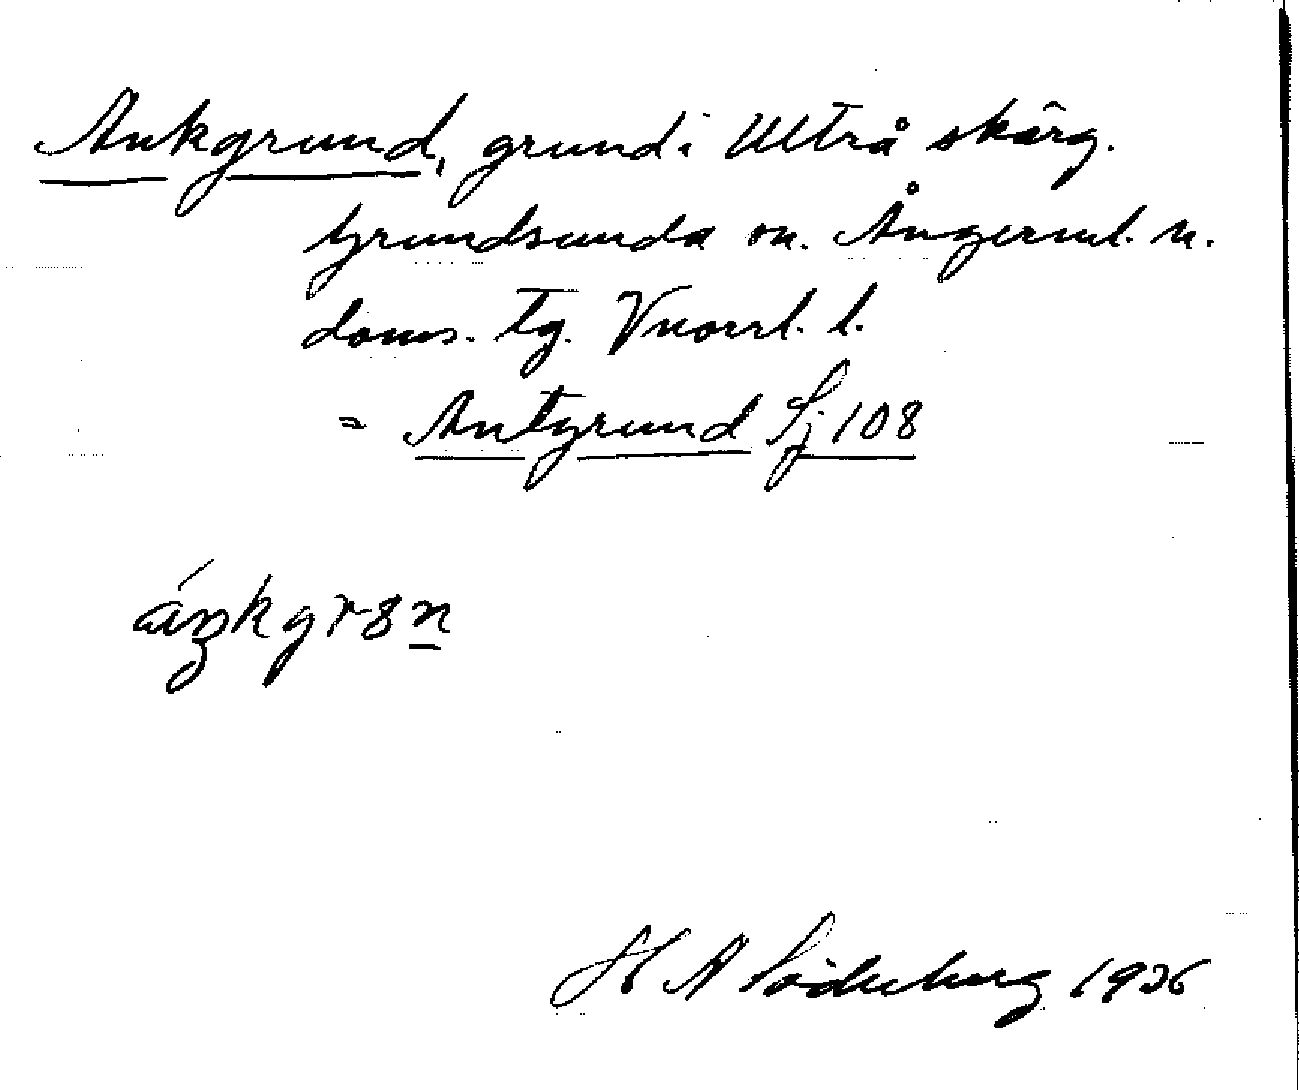 Ankgrund, grund i Ulträ skärg.
Grundsunda sn. Ångerml. n.
doms. tg. Vnorrl. l.
= Antgrund Sj 108
áŋkgr8n
H A Söderberg 1926